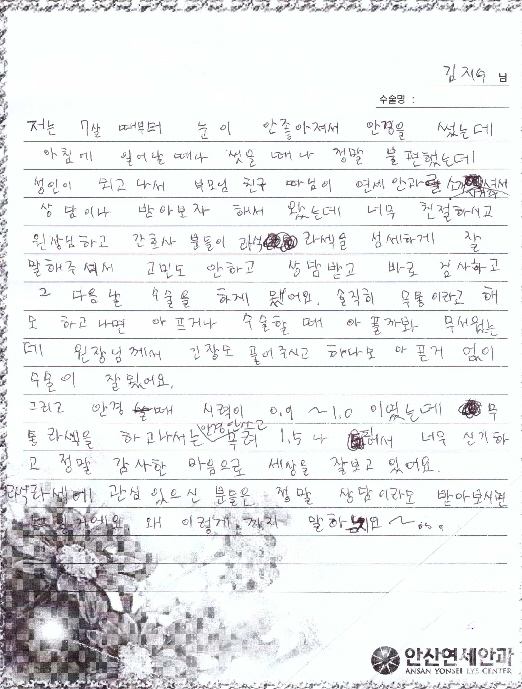 김지수 님
수술명 :
저는 7살 때부터 눈이 안좋아져서 안경을 썼는데
아침에 일어날때나 씻을 때나 정말 불편했는데
성인이 되고 나서 부모님 친구 따님이 연세안과를
상담이나 받아보자 해서 왔는데 너무 친절하시고
원장님하고 간호사 분들이 라섹을 섬세하게 잘
말해주셔서 고민도 안하고 상담받고 바로 검사하고
그 다음날 수술을 하게 됬어요. 솔직히 무통이라고 해
도 하고나면 아프거나 수술할 때 아플까봐 무서웠는
데 원장님께서 긴장도 풀어주시고 하나도 아픈거 없이
수술이 잘 됬어요.
그리고 안경 쓸때 시력이 0.9 ~ 1.0 이였는데 무
통 라섹을 하고나서는 안경안쓰고 무려 1.5나 너무 신기하
고 정말 감사한 마음으로 세상을 잘보고 있어요.
라섹에 관심 있으신 분들은 정말 상담이라도 받아보시면
왜 이렇게 까지 말하는지요 ~
안산연세안과
ANSAN YONSEI EYE CENTER